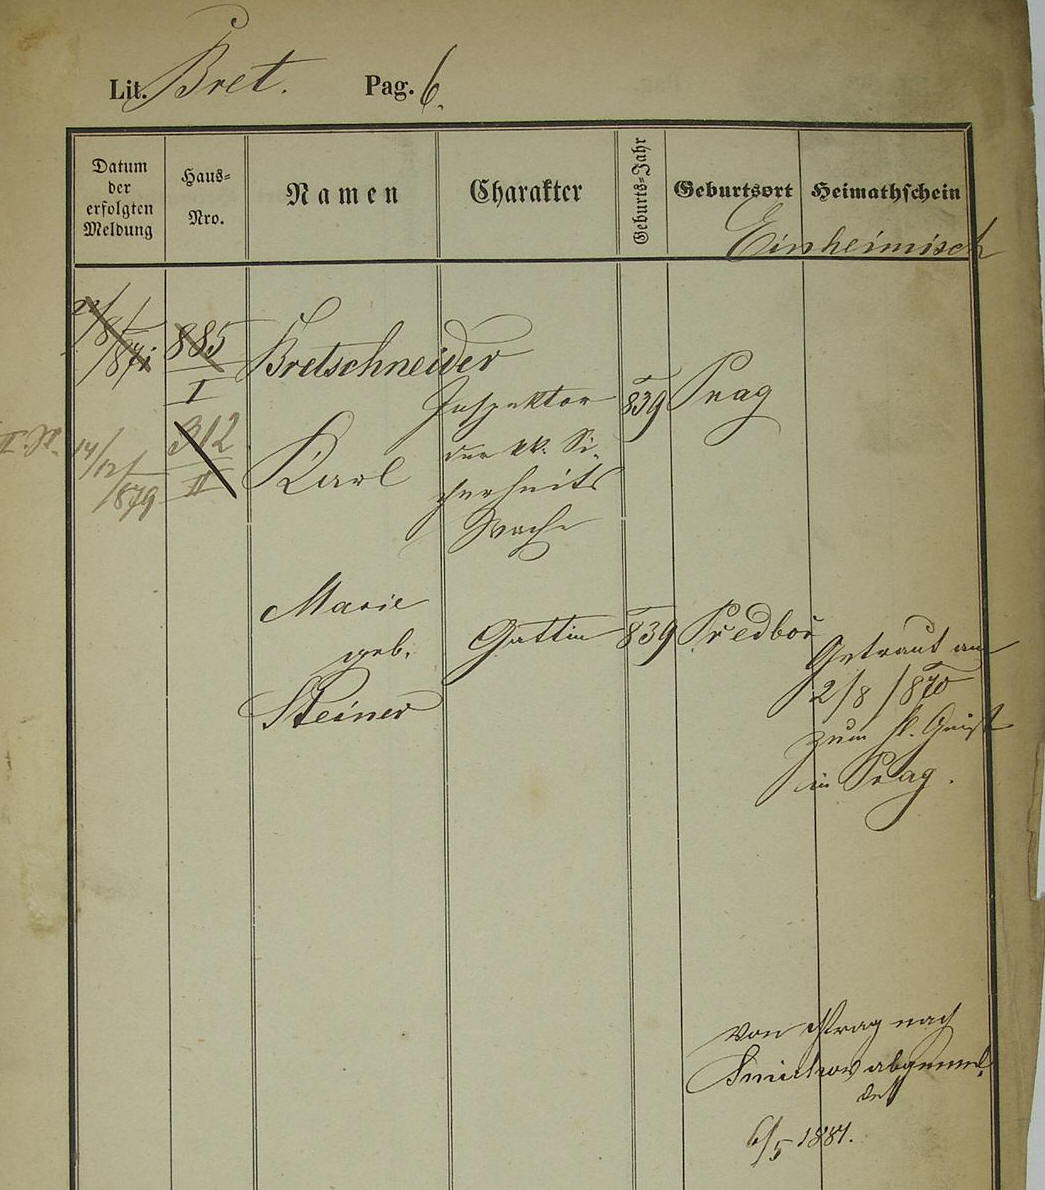 Lit. Bret. Pag. 6.
Datum
der
erfolgten
Meldung
Haus-
Nro.
Namen
Charakter
Geburts-Jahr
Geburtsort
Heimathschein
Einheimisch
/8
/871
885
I
Bretschneider
Inspektor
839
Prag
312
II
14/12
/879
Karl
der kk. Si-
cherheits
Wache
Marie
geb.
Steiner
Gattin
839
Předboř
Getraut am
2/8 /870
zum hl. Geist
in Prag.
Von Prag nach
Smichow abgemel-
det
6/5 1881.